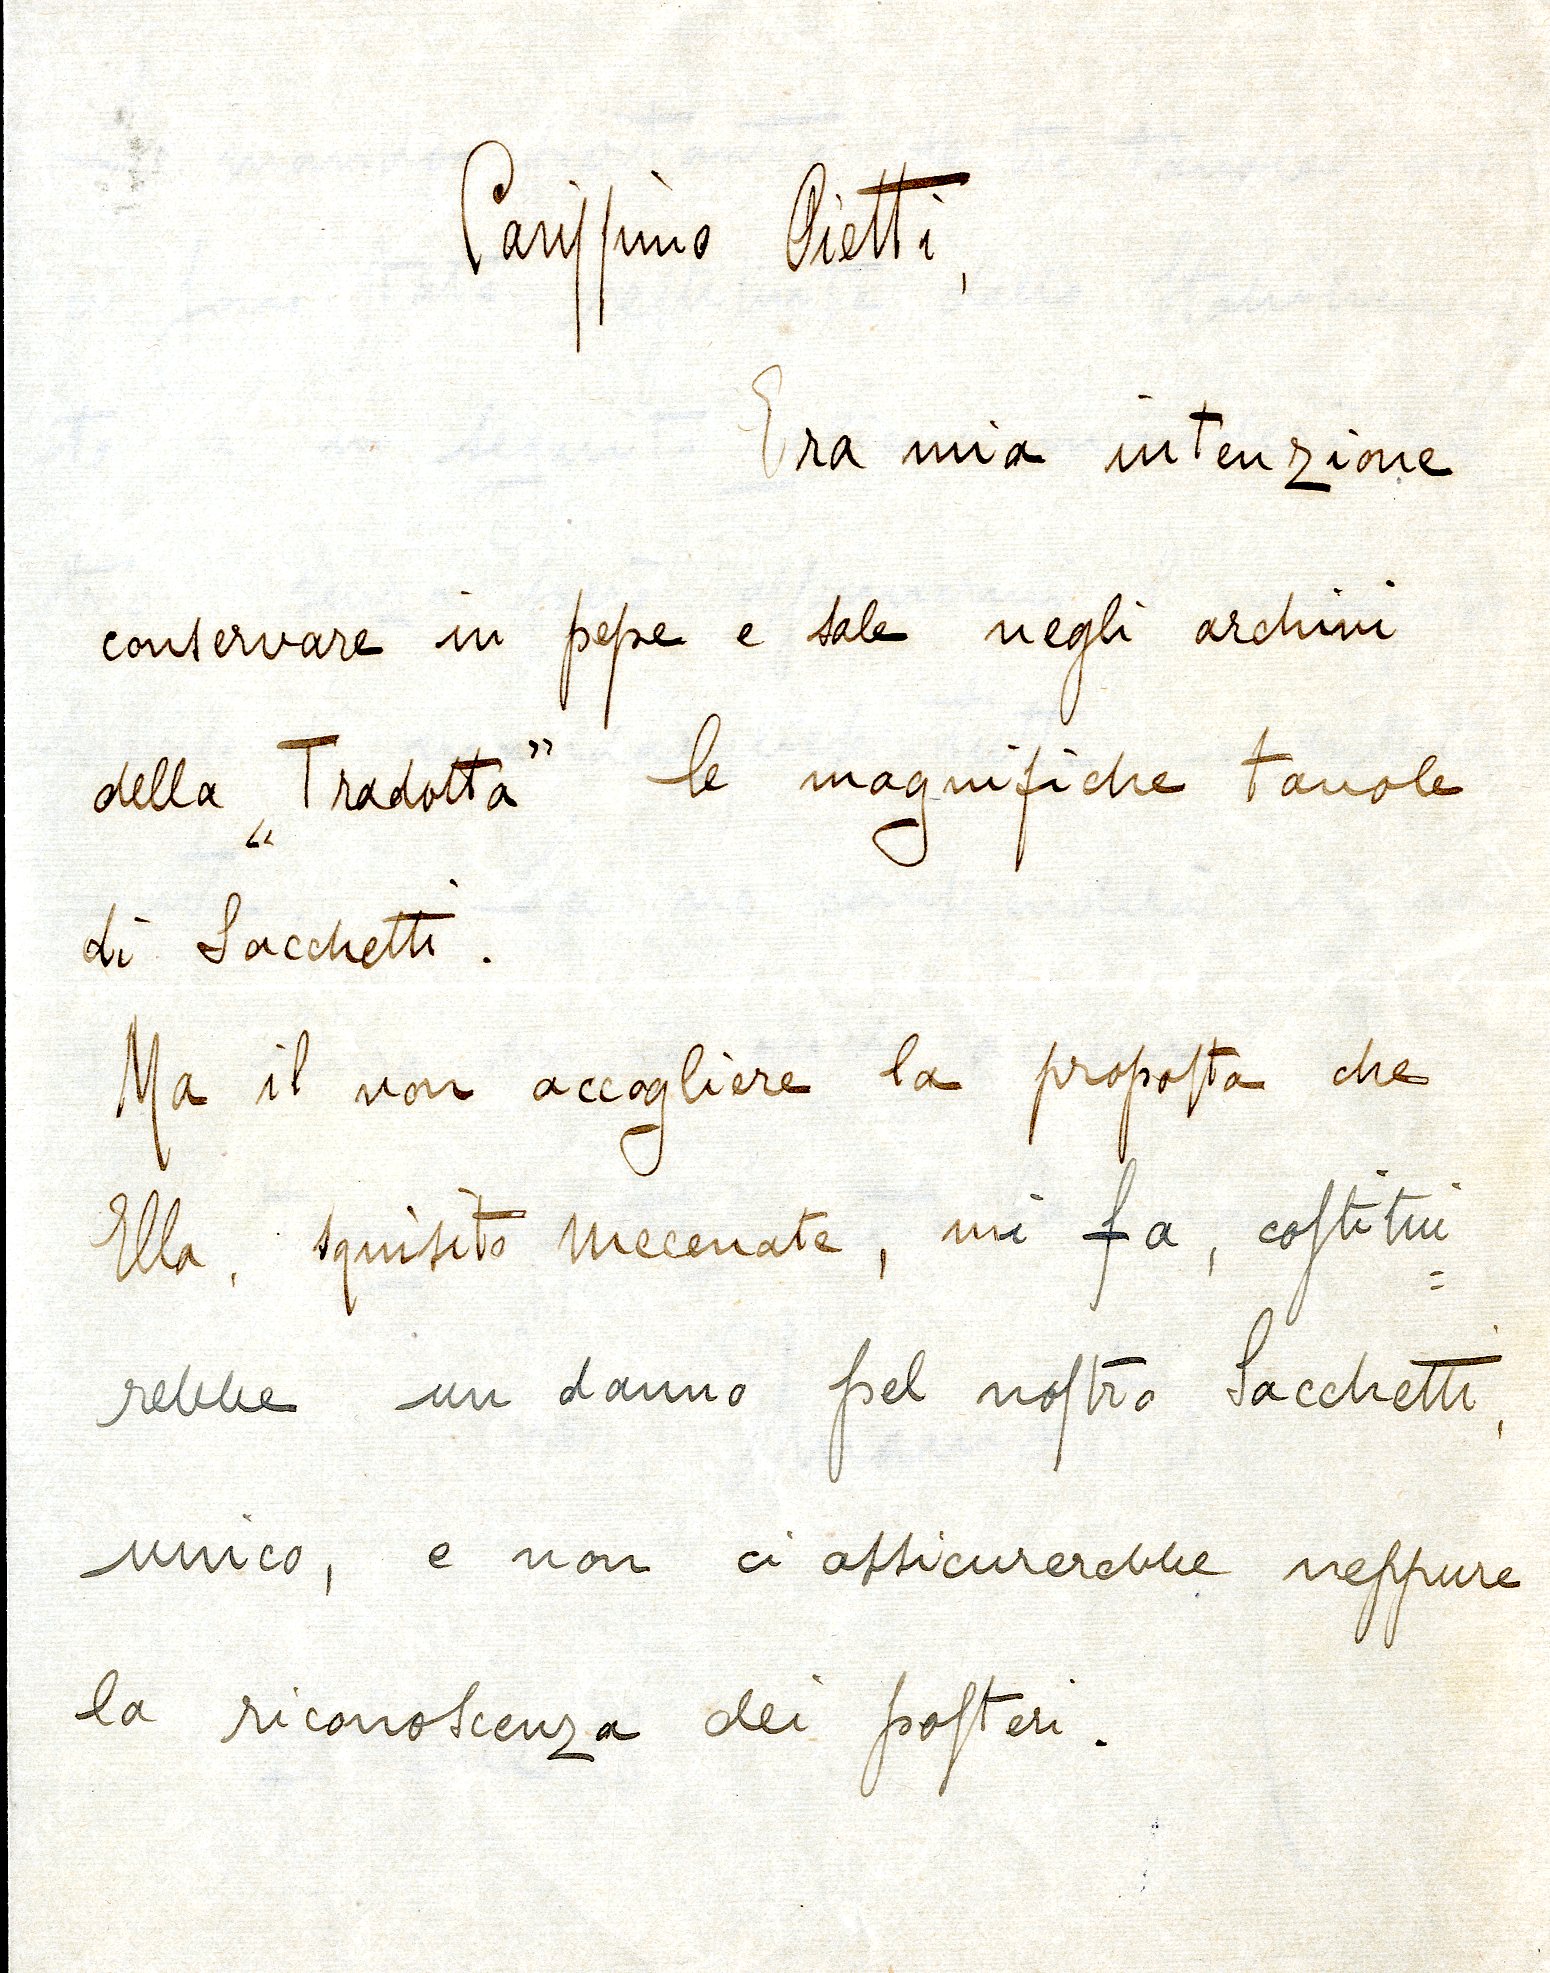 Carissimo Pietti,
Era mia intenzione
conservare in pepe e sale negli archivi
della „Tradotta” le magnifiche tavole
di Sacchetti.
Ma il non accogliere la proposta che
Ella, squisito mecenate, mi fa, costitui=
rebbe un danno pel nostro Sacchetti,
unico, e non ci assicurerebbe neppure
la riconoscenza dei posteri.